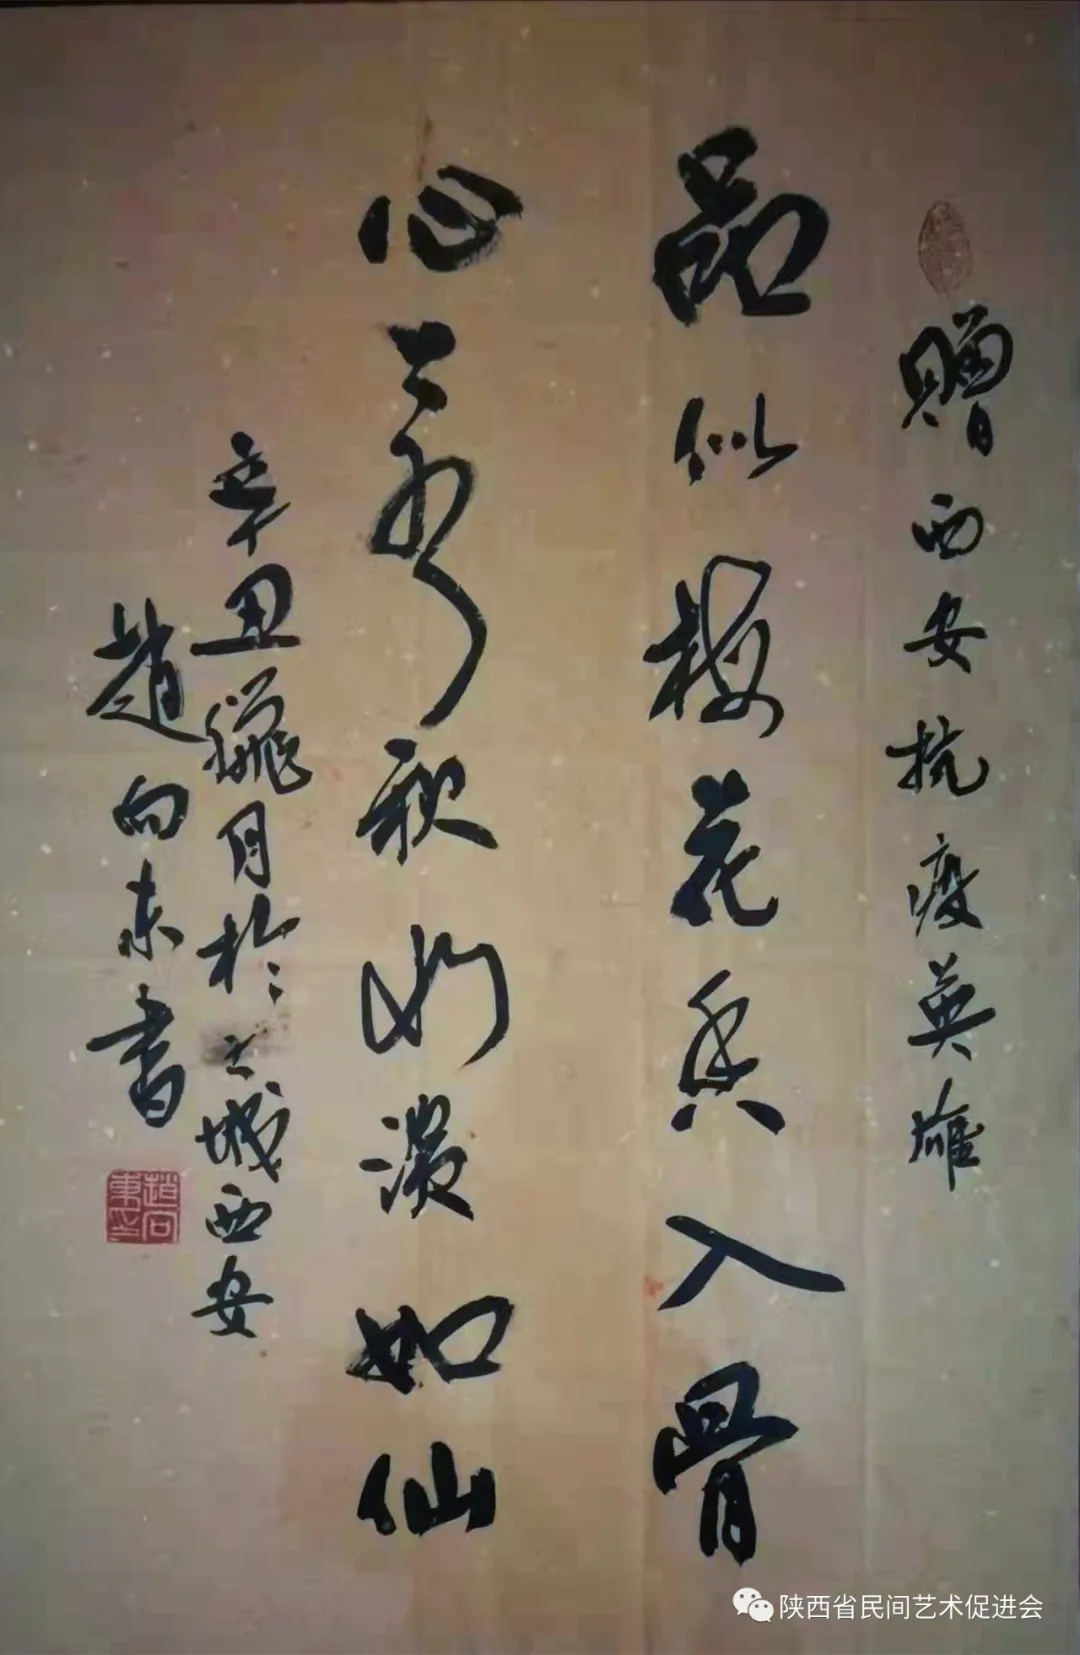 贈西安抗疫英雄
品似梅花香入骨
心秋水淡如仙
辛丑臘月於古城西安
趙向東書
趙向東印
陕西省民间艺术促进会